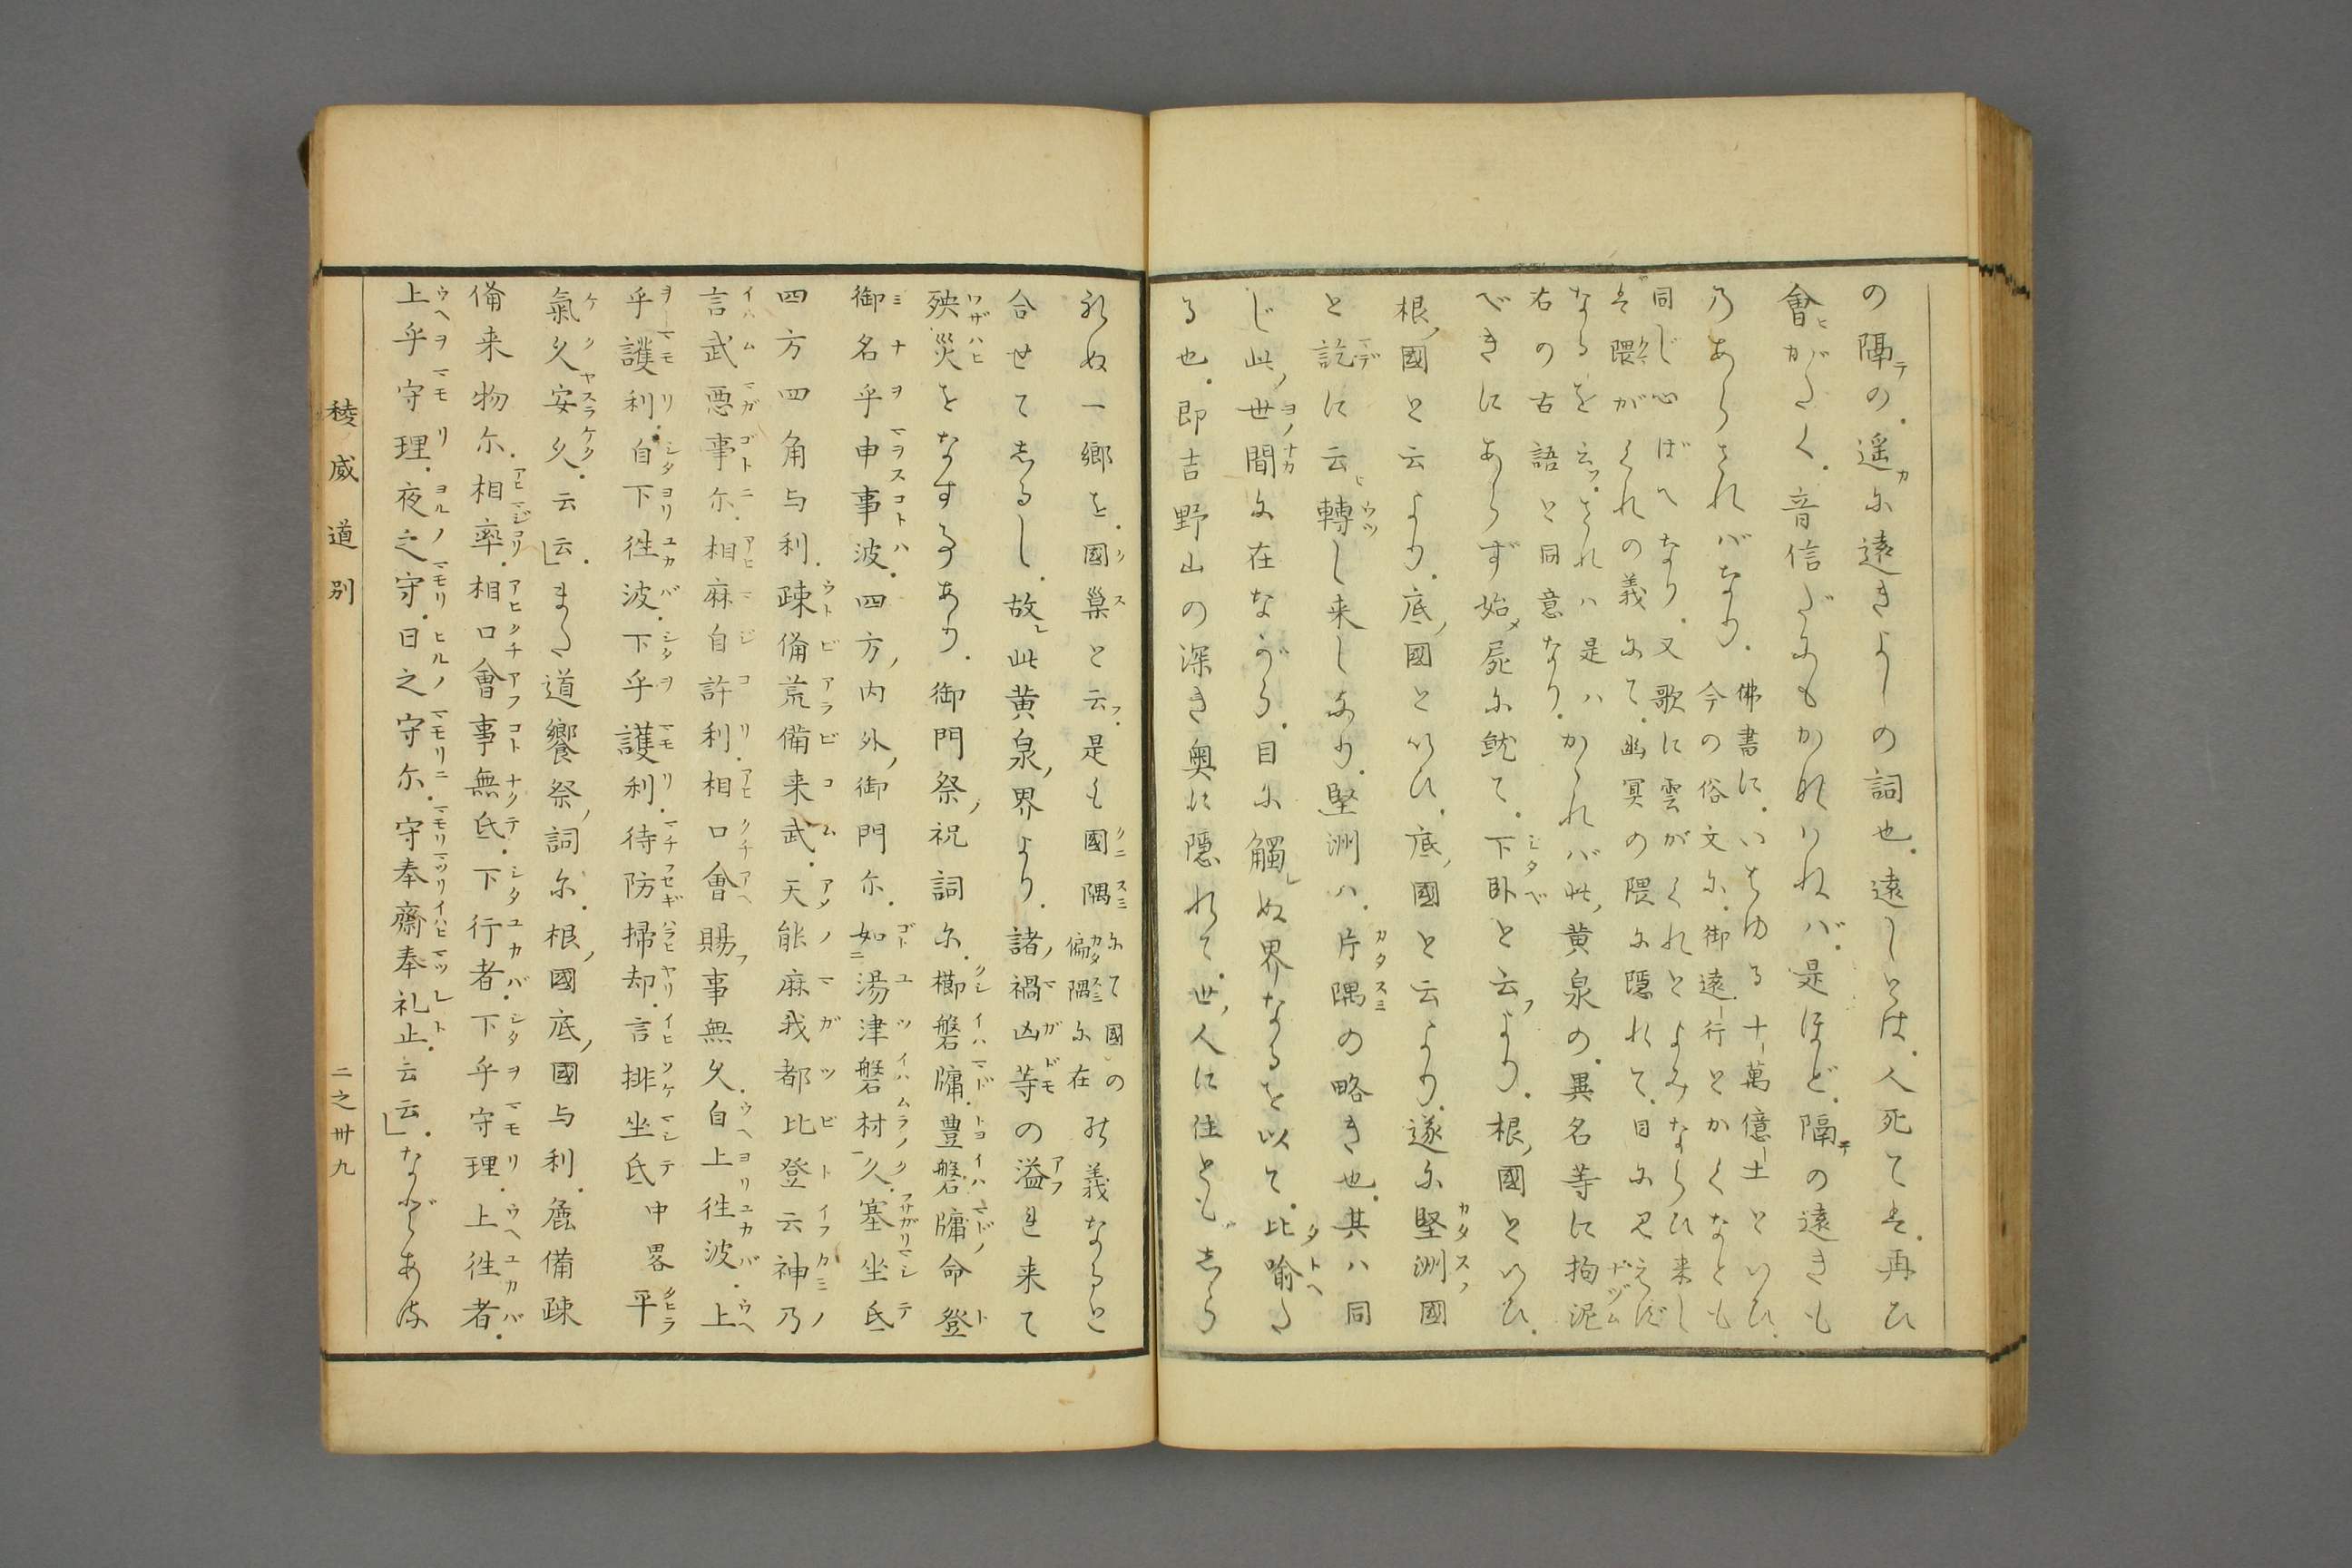 の隔の。遥尓遠きよしの詞也。遠しとは。人死ては。再ひ
會がたく。音信だにもかよはねバ。是ほど。隔の遠きも
乃あらざれバなり。
佛書に。いはゆる十萬億土といひ。
今の俗文尓。御遠行とかくなとも
同じ心ばへなり。又歌に雲がくれとよみならひ来し
は隈がくれの義にて。幽冥の隈尓隠れて。目尓見えず
なるを云フ。されハ是ハ
右の古語と同意なり。
かゝれバ此黄泉の。異名等に拘泥
べきにあらず始メ屍尓就て。下臥と云より。根ノ國といひ。
根ノ國と云より。底ノ國といひ。底ノ國と云より。遂尓堅洲國
と訖に云轉し来しなり。堅洲ハ。片隅の略き也。其ハ同
じ此ノ世間に在ながら。目尓觸レぬ界なるを以て。比喩た
る也。即吉野山の深き奥に隠れて。世ノ人に住とも。しら
れぬ一郷を。國巢と云フ。是も國隅
尓て國の
偏隅尓在
the義なると
合せてしるし。故レ此黄泉ノ界より。諸ノ禍凶等の溢れ来て
殃災をなす事あり。御門祭ノ祝詞尓。櫛磐牖。豊磐牖命登
御名乎申事波。四方ノ内外ノ御門尓。如湯津磐村久。塞坐氐
四方四角与利。疎備荒備来武。天能麻我都比登云神乃
言武悪事尓。相麻自許利。相口會賜フ事無久。自上往波。上
乎護利。自下往波。下乎護利。待防掃却。言排坐氐中畧平
氣久安久。云云」また道饗祭ノ詞尓。根ノ國底ノ國与利。麁備疎
備来物尓。相率。相口會事無氐。下行者。下乎守理。上往者。
上乎守理。夜之守。日之守尓。守奉齋奉礼止。云云」などあは
稜威道別
二之卅九